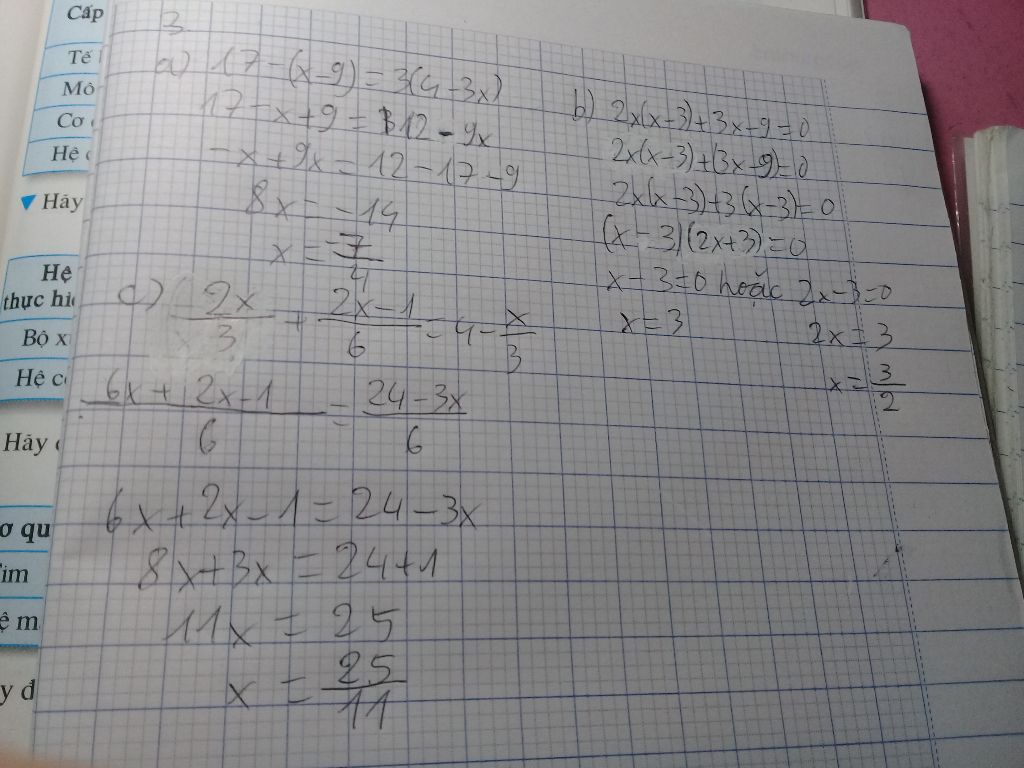 Cấp
Tế
Mô
Cơ
Hệ
Hãy
Hệ
thực hiệ
Bộ x
Hệ c
Hãy
ơ qu
ìm
ệ m
y đ
3.
a) 17-(x-9)=3(4-3x)
17-x+9=12-9x
-x+9x=12-17-9
8x=-14
x=-7/4
b) 2x(x-3)+3x-9=0
2x(x-3)+(3x-9)=0
2x(x-3)+3(x-3)=0
(x-3)(2x+3)=0
x-3=0 hoặc 2x-3=0
x=3 2x=3
x=3/2
c) 2x/3 + 2x-1/6 = 4-x/3
6x+2x-1/6 = 24-3x/6
6x+2x-1=24-3x
8x+3x=24+1
11x=25
x=25/11